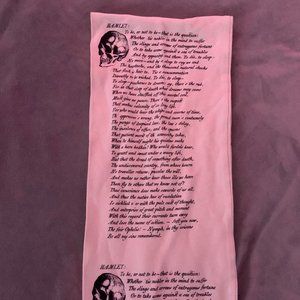 HAMLET:
To be, or not to be - that is the question:
Whether 'tis nobler in the mind to suffer
The slings and arrows of outrageous fortune
Or to take arms against a sea of troubles
And by opposing end them. To die, to sleep -
No more - and by a sleep to say we end
The heartache, and the thousand natural shocks
That flesh is heir to. 'Tis a consummation
Devoutly to be wished. To die, to sleep -
To sleep - perchance to dream: ay, there's the rub,
For in that sleep of death what dreams may come
When we have shuffled off this mortal coil,
Must give us pause. There's the respect
That makes calamity of so long life.
For who would bear the whips and scorns of time,
Th' oppressor's wrong, the proud man's contumely
The pangs of despised love, the law's delay,
The insolence of office, and the spurns
That patient merit of th' unworthy takes,
When he himself might his quietus make
With a bare bodkin? Who would fardels bear,
To grunt and sweat under a weary life,
But that the dread of something after death,
The undiscovered country, from whose bourn
No traveller returns, puzzles the will,
And makes us rather bear those ills we have
Than fly to others that we know not of?
Thus conscience does make cowards of us all,
And thus the native hue of resolution
Is sicklied o'er with the pale cast of thought,
And enterprise of great pitch and moment
With this regard their currents turn awry
And lose the name of action. - Soft you now,
The fair Ophelia! - Nymph, in thy orisons
Be all my sins remembered.
HAMLET:
To be, or not to be - that is the question:
Whether 'tis nobler in the mind to suffer
The slings and arrows of outrageous fortune
Or to take arms against a sea of troubles